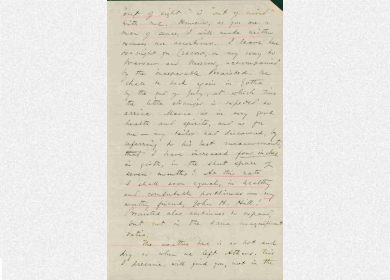 "out of sight" is "out of mind"
with me. However, as you are a
man of sense, I will make neither
excuses nor
to-night for on my way to
Warsaw and Moscow, accompanied
by the inseparable We
shall be back again in Gotha
by the end of July, at which time
the little stranger is expected to
arrive. Marie is in very good
health and spirits, and as for
me — my tailor has discovered, by
referring to his last measurement,
that I have increased four inches
in girth, in the short space of
seven months! At this rate
I shall soon equal, in healthy
and comfortable portliness my
worthy friend, John H. Hill!
also continues to expand,
but not in the same magnificent
ratio.
The weather here is as hot and
dry as when we left Athens. This
I presume, will find you, not in the